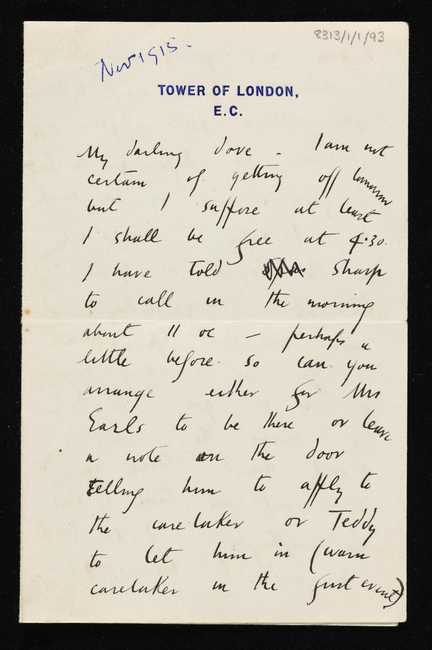 8313/1/1/93
Nov 1915.
TOWER OF LONDON,
E.C.
My darling dove - I am not
certain of getting off tomorrow
but I suppose at least
I shall be free at 4.30.
I have told Sharp
to call in the morning
about 11 oc - perhaps a
little before. So can you
arrange either for Mrs
Earls to be there or leave
a note on the door
telling him to apply to
the caretaker or Teddy
to let him in (warn
caretaker in the first event)